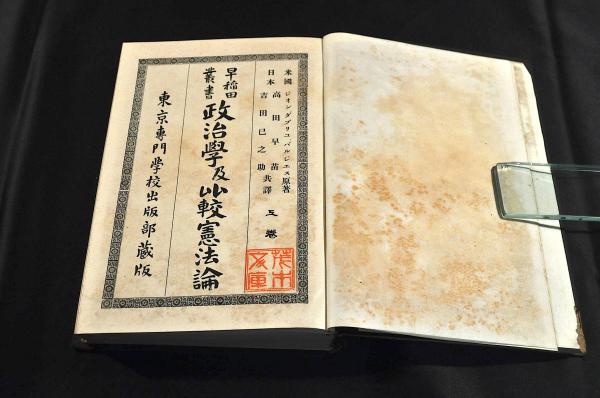 米國 ジオンダブリユ バルジエス原著
日本 高田早苗
吉田巳之助共譯
卷
早稲田
叢書
政治學及比較憲法論
東京專門學校出版部藏版
文庫